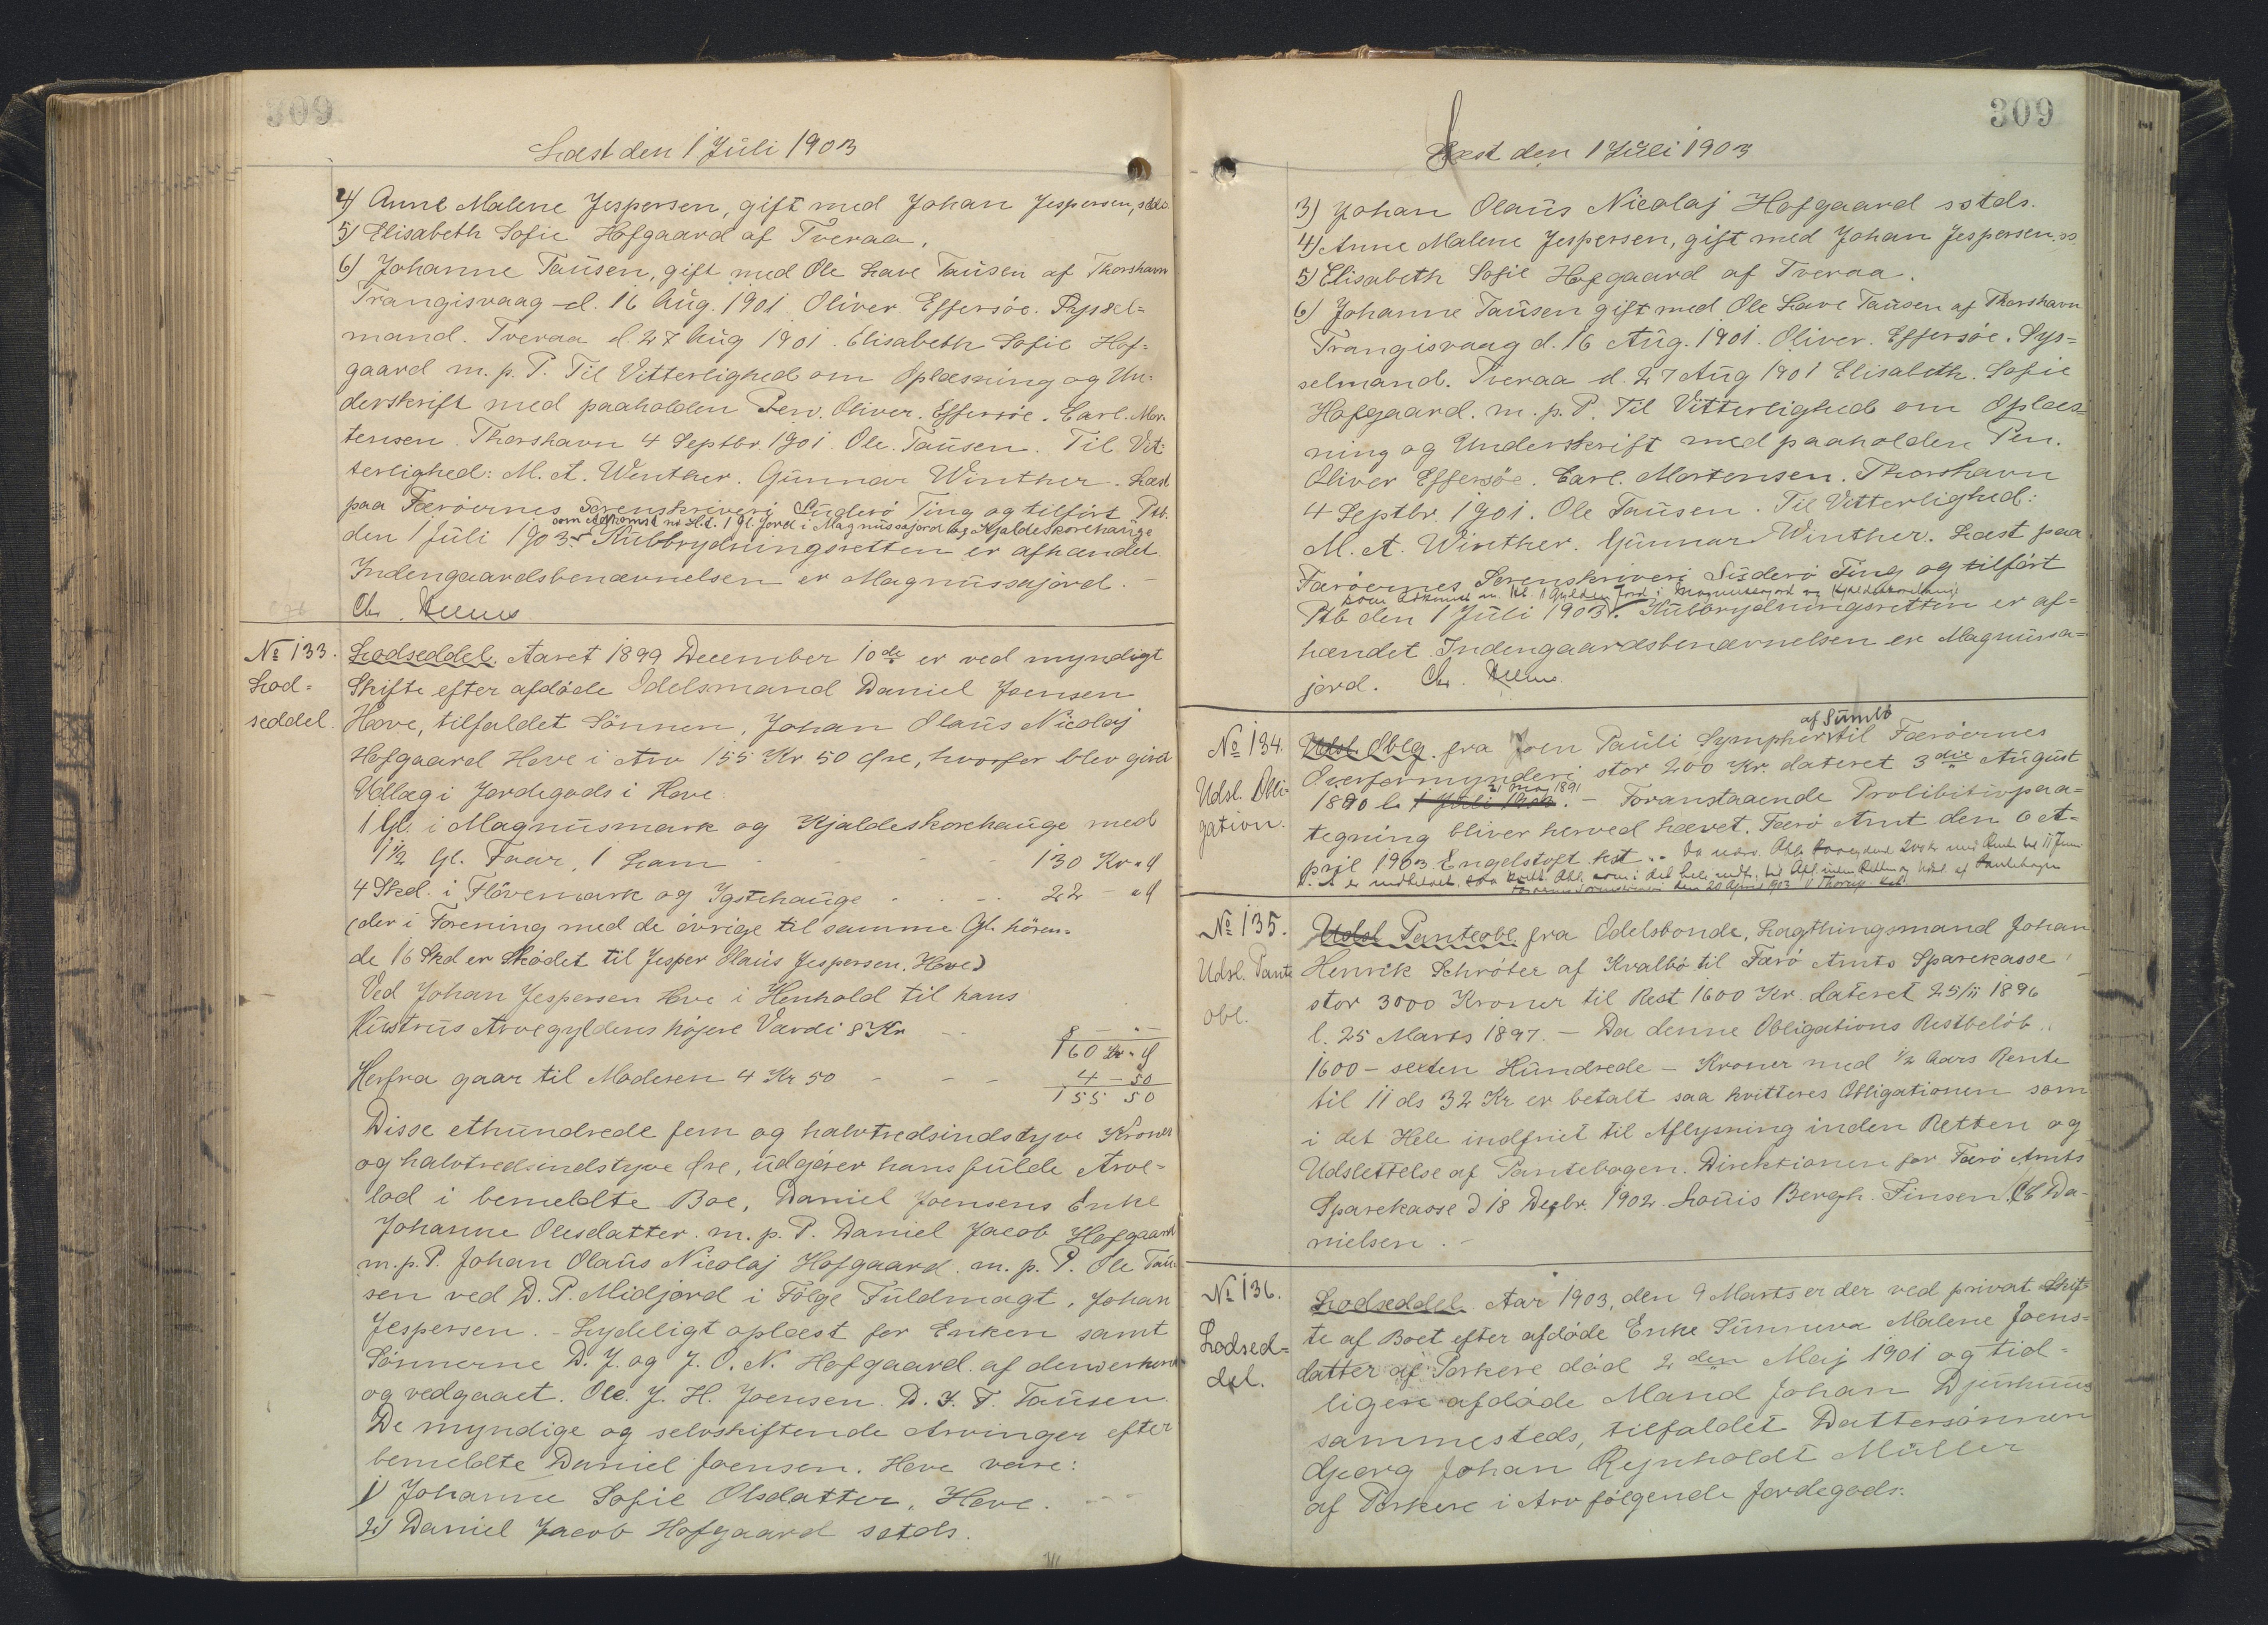 309
Læst den 1 Júli 1903
4) Anne Malene Jespersen, gift med Johan Jespersen, sstds.
5) Elisabeth Sofie Hofgaard af Tveraa.
6) Johanne Taúsen, gift med Ole Lave Taúsen af Thorshavn
Trangisvaag d. 16 Aúg. 1901 Oliver Effersöe. Syssel=
mand. Tveraa d. 27 Aúg 1901. Elisabeth Sofie Hof=
gaard m. p. P. Til Vitterlighed om Oplæsning og Un=
derskrift med paaholden Pen. Oliver Effersöe. Carl. Mor=
tensen. Thorshavn 4 Septbr. 1901. Ole. Taúsen. Til Vit=
terlighed: M. A. Winther. Gúnnar Winther. Læst
paa Færöernes Sorenskriveri Súderö Ting og tilfört Ptb.
som Adkomst 1 Gl. Jord i Magnússajord og Kjaldeskorehaúge
den 1 Júli 1903. Kúbbrydningsretten er afhændet.
Indengaardsbenævnelsen er Magnússajord.
Chr.
№ 133.
Lod=
seddel.
Lodseddel. Aaret 1899 December 10de er ved myndigt
Skifte efter afdöde Odelsmand Daniel Joensen
Hove, tilfaldet Sönnen, Johan Olaús Nicolaj
Hofgaard Hove i Arv 155 Kr 50 Öre, hvorfor blev givet
Udlæg i Jordegods i Hove.
1 Gl. i Magnúsmark og Kjaldeskorehaúge med
1½ Gl. Faar, 1 Lam - - - 130 Kr " Ø
4 Skd. i Flövemark og Ygstehaúge - - - 22 - " Ø
(der i Forening med de övrige til samme Gl. hören=
de 16 Skd er Sködet til Jesper Olaús Jespersen, Hove)
Ved Johan Jespersen Hove i Henhold til hans
Hústrús Arvegyldens höjere Værdi 8 Kr - 8 - " -
160 Kr " Ø
Herfra gaar til Moderen 4 Kr 50 - - - 4 - 50
155 50
Disse ethúndrede fem og halvtredsindstyve Kroner
og halvtredsindstyve Öre, údgörer hans fúlde Arve=
lod i bemeldte Boe, Daniel Joensens Enke
Johanne Olesdatter. m. p. P. Daniel Jacob Hofgaard
m. p. P. Johan Olaús Nicolaj Hofgaard. m. p. P. Ole Taú=
sen ved D. P. Midjord i Fölge Fúldmagt, Johan
Jespersen. - Lydeligt oplæst for Enken samt
Sönnerne D. J. og J. O. N. Hofgaard. af dem erkend
og vedgaaet. Ole. J. H. Joensen. D. J. T. Taúsen.
De myndige og selvskiftende Arvinger efter
bemeldte Daniel Joensen. Hove vare:
1) Johanne Sofie Olsdatter, Hove.
2) Daniel Jacob Hofgaard sstds.
309
Læst den 1 Júli 1903
3) Johan Olaús Nicolaj Hofgaard sstds.
4) Anne Malene Jespersen, gift med Johan Jespersen. ss
5) Elisabeth Sofie Hofgaard af Tveraa.
6) Johanne Taúsen gift med Ole Lave Taúsen af Thorshavn
Trangisvaag d. 16 Aúg. 1901. Oliver. Effersöe. Sys=
selmand. Tveraa d. 27 Aúg 1901 Elisabeth. Sofie
Hofgaard. m. p. P. Til Vitterlighed om Oplæs=
ning og Underskrift med paaholden Pen.
Oliver Effersöe. Carl. Mortensen. Thorshavn
4 Septbr. 1901. Ole Taúsen. Til Vitterlighed:
M. A. Winther. Gúnnar Winther. Læst paa
Færöernes Sorenskriveri Súderö Ting og tilfört
som Adkomst 1 Gylden Jord i Magnussajord og Kjaldeskorehauge
Ptb den 1 Júli 1903. Kúbbrydningsretten er af=
hændet. Indengaardsbenævnelsen er Magnússa=
jord. Chr.
№ 134.
Udsl. Obli-
gation.
af Súmbö
Udsl. Oblg. fra Joen Paúli Sympher til Færöernes
Overformynderi stor 200 Kr. dateret 3die Aúgúst
21 Maj 1891
1890 l. 1 Júli 1903. - Foranstaaende Prohibitivpaa=
tegning bliver herved hævet. Færö Amt den 6 A=
pril 1903. Engelstoft kst. Da
den 20 April 1903
№ 135.
Udsl. Pante
obl.
Udsl Panteobl. fra Odelsbonde, Lagthingsmand Johan
Henrik Schröter af Kvalbö til Færö Amts Sparekasse
stor 3000 Kroner til Rest 1600 Kr. dateret 25/11 1896
l. 25 Marts 1897. - Da denne Obligations Restbelöb
1600 - sexten Húndrede - Kroner med ½ Aars Rente
til 11 ds 32 Kr er betalt saa kvitteres Obligationen som
i det Hele indfriet til Aflysning inden Retten og
Udslettelse af Pantebogen. Direktionen for Færö Amts
Sparekasse d 18 Decbr. 1902. Loúis Bergh. Finsen. C Da-
nielsen. -
№ 136.
Lodsed=
del.
Lodseddel. Aar 1903, den 9 Marts er der ved privat Skif=
te af Boet efter afdöde Enke Súnneva Malene Joens=
datter af Porkere död 2den Maj 1901 og tid=
ligere afdöde Mand Johan Djúrhúús
sammesteds, tilfaldet Dattersönnen
Georg Johan Rejnholdt Múller
af Porkere i Arv fölgende Jordegods: